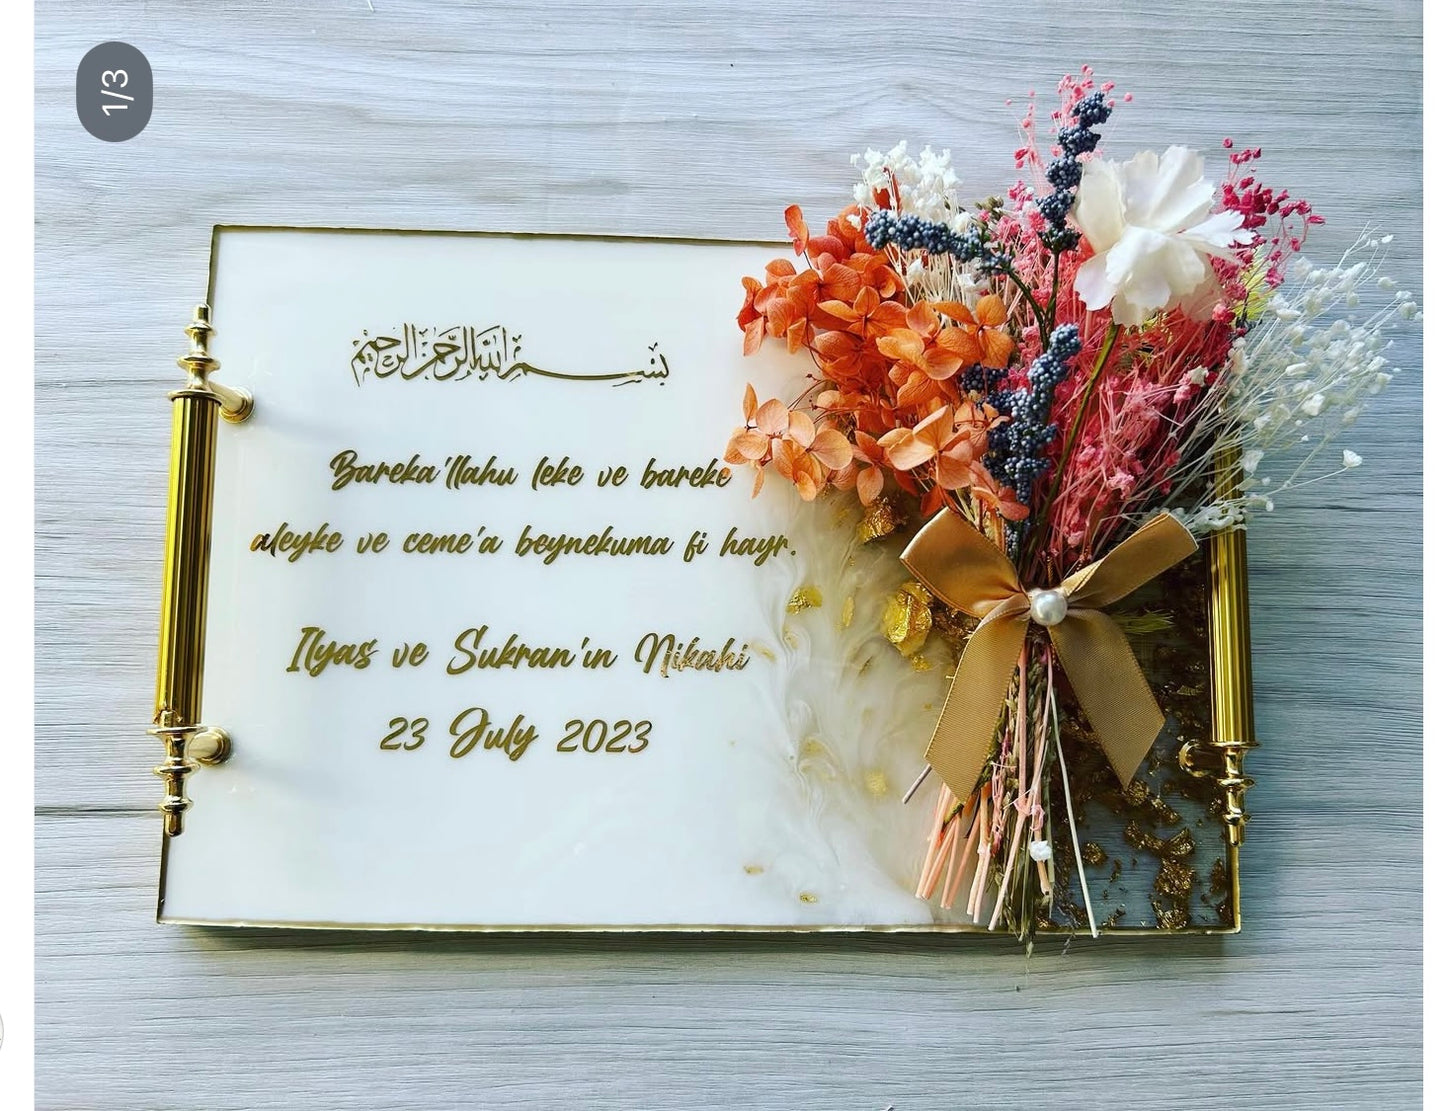 1/3
بسم الله الرحمن الرحيم
Bareka'llahu leke ve bareke
aleyke ve ceme'a beynekuma fi hayr.
Ilyas ve Sukran'ın Nikahi
23 July 2023